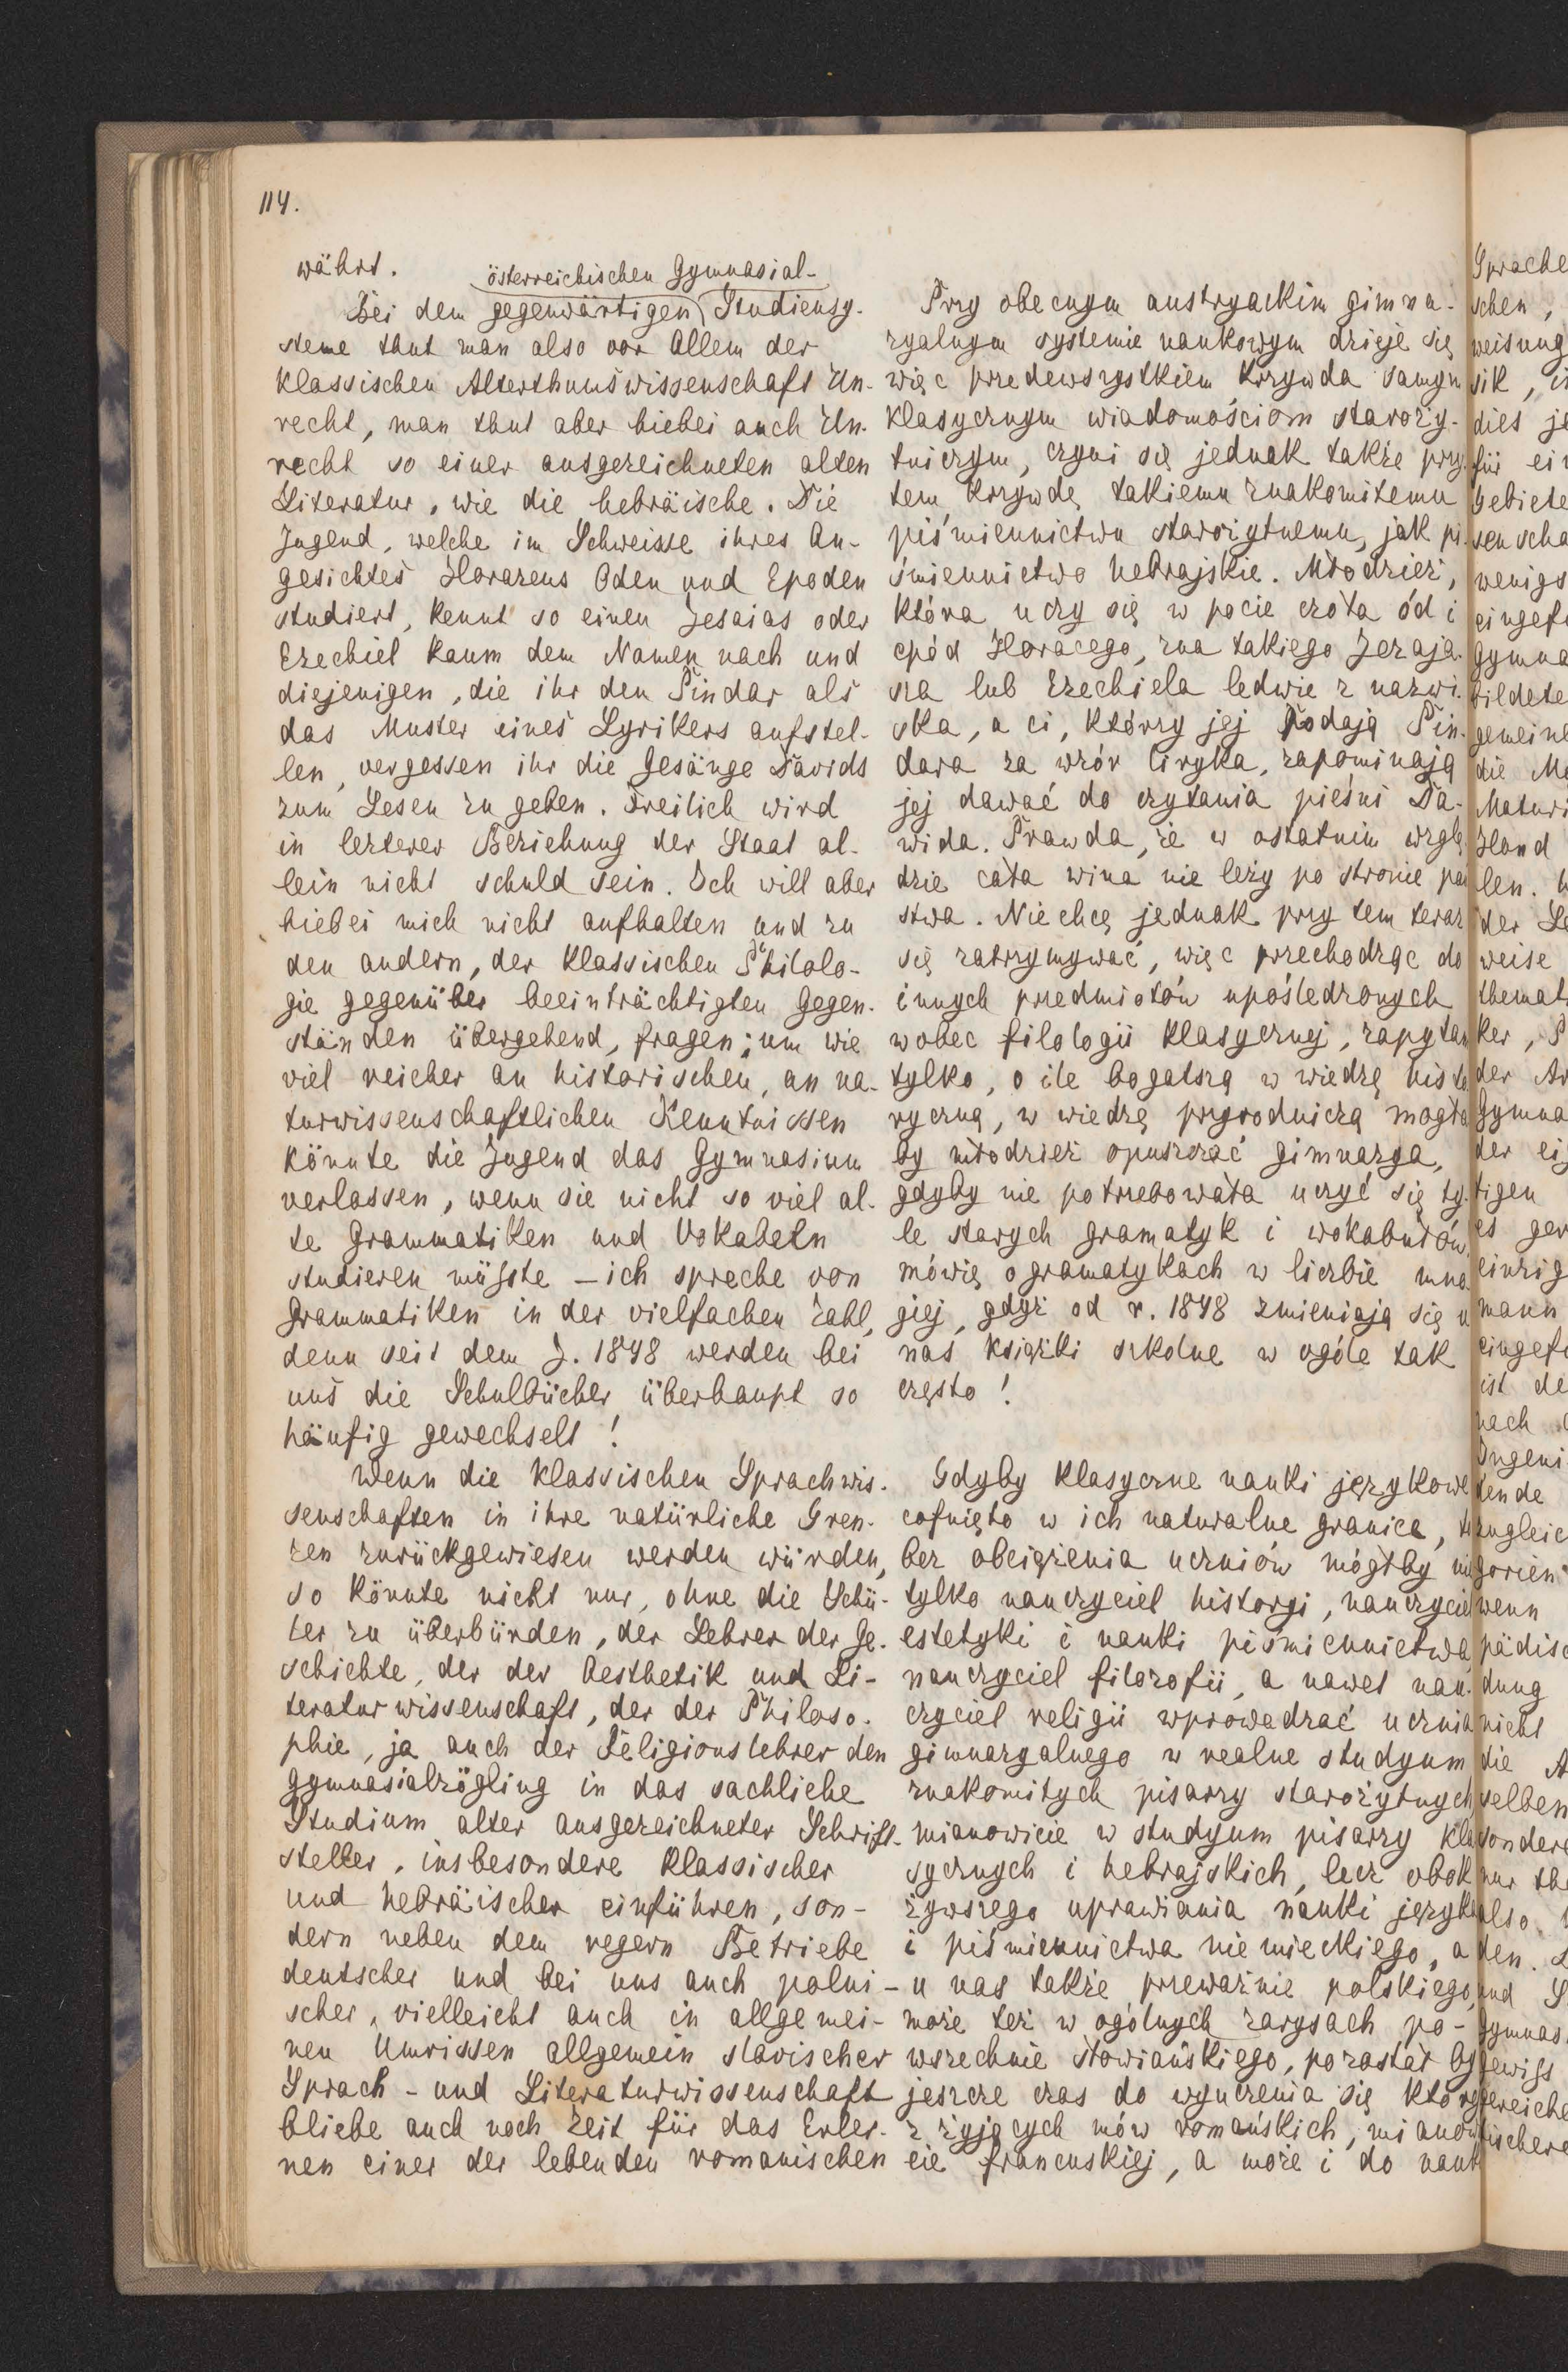 114.
währt.
österreichischen Gymnasial-
Bei dem gegenwärtigen Studiensy-
steme thut man also vor Allem der
klassischen Alterthumswissenschaft Un-
recht, man thut aber hiebei auch Un-
recht so einer ausgezeichneten alten
Literatur, wie die hebräische. Die
Jugend, welche im Schweisse ihres An-
gesichtes Horazens Oden und Epoden
studiert, kennt so einen Jesaias oder
Ezechiel kaum dem Namen nach und
diejenigen, die ihr den Pindar als
das Muster eines Lyrikers aufstel-
len, vergessen ihr die Gesänge Davids
zum Lesen zu geben. Freilich wird
in lezterer Beziehung der Staat al-
lein nicht schuld sein. Ich will aber
hiebei mich nicht aufhalten und zu
den andern, der klassischen Philolo-
gie gegenüber beeinträchtigten Gegen-
ständen übergehend, fragen; um wie
viel reicher an historischen, an na-
turwissenschaftlichen Kenntnissen
könnte die Jugend das Gymnasium
verlassen, wenn sie nicht so viel al-
te Grammatiken und Vokabeln
studieren müsste – ich spreche von
Grammatiken in der vielfachen Zahl,
denn seit dem J. 1848 werden bei
uns die Schulbücher überhaupt so
häufig gewechselt!
Wenn die klassischen Sprachwis-
senschaften in ihre natürliche Gren-
zen zurückgewiesen werden würden,
so könnte nicht nur, ohne die Schü-
ler zu überbürden, der Lehrer der Ge-
schichte, der der Aesthetik und Li-
teraturwissenschaft, der der Philoso-
phie, ja auch der Religionslehrer den
Gymnasialzögling in das sachliche
Studium alter ausgezeichneter Schrift-
steller, insbesondere klassischer
und hebräischer einführen, son-
dern neben dem regern Betriebe
deutscher und bei uns auch polni-
scher, vielleicht auch in allgemei-
nen Umrissen allgemein slavischer
Sprach- und Literaturwissenschaft
bliebe auch noch Zeit für das Erler-
nen einer der lebenden romanischen
Przy obecnym austryackim gimna-
zyalnym systemie naukowym dzieje się
więc przedewszystkiem krzywda samym
klasycznym wiadomościom staroży-
tniczym, czyni się jednak także przy
tem krzywdę takiemu znakomitemu
piśmiennictwu starożytnemu, jak pi-
śmiennictwo hebrajskie. Młodzież,
która uczy się w pocie czoła ód i
epód Horacego, zna takiego Jezaja-
sza lub Ezechiela ledwie z nazwi-
ska, a ci, którzy jej podają Pin-
dara za wzór liryka, zapominają
jej dawać do czytania pieśni Da-
wida. Prawda, że w ostatnim wzglę
dzie cała wina nie leży po stronie pań
stwa. Nie chcę jednak przy tem teraz
się zatrzymywać, więc przechodząc do
innych przedmiotów upośledzonych
wobec filologii klasycznej, zapytam
tylko, o ile bogatszą w wiedzę histo
ryczną, w wiedzę przyrodniczą mogła
by młodzież opuszczać gimnazya,
gdyby nie potrzebowała uczyć się ty-
le starych gramatyk i wokabułów
mówię o gramatykach w liczbie mno
giej, gdyż od r. 1848 zmieniają się u
nas książki szkolne w ogóle tak
często!
Gdyby klasyczne nauki językowe
cofnięto w ich naturalne granice, to
bez obciążenia uczniów mógłby nie
tylko nauczyciel historyi, nauczyciel
estetyki i nauki piśmiennictwa,
nauczyciel filozofii, a nawet nau-
czyciel religii wprowadzać ucznia
gimnazyalnego w realne studyum
znakomitych pisarzy starożytnych
mianowicie w studyum pisarzy kla
sycznych i hebrajskich, lecz obok
żywszego uprawiania nauki języka
i piśmiennictwa niemieckiego, a
u nas także przeważnie polskiego,
może też w ogólnych zarysach po-
wszechnie słowiańskiego, pozostał by
jeszcze czas do wyuczenia się które
z żyjących mów romańskich, mianow
cie francuskiej, a może i do nauk
Sprache
schen,
weisung
sik, i
dies je
für ein
Gebiete
senscha
wenigs
eingef
Gymna
bildete
gemein
die Ma
Maturi
Hand
len.
der Le
weise
themat
ker,
der Ar
Gymna
der ei
tigen
es ger
einzig
mann
eingef
ist de
nach
Ingeni
tende
zugleic
gorien
wenn
pädisc
dung
nicht
die A
selben
sondere
nur th
also
den.
und S
Gymnas
gewiss
ereiche
tischere